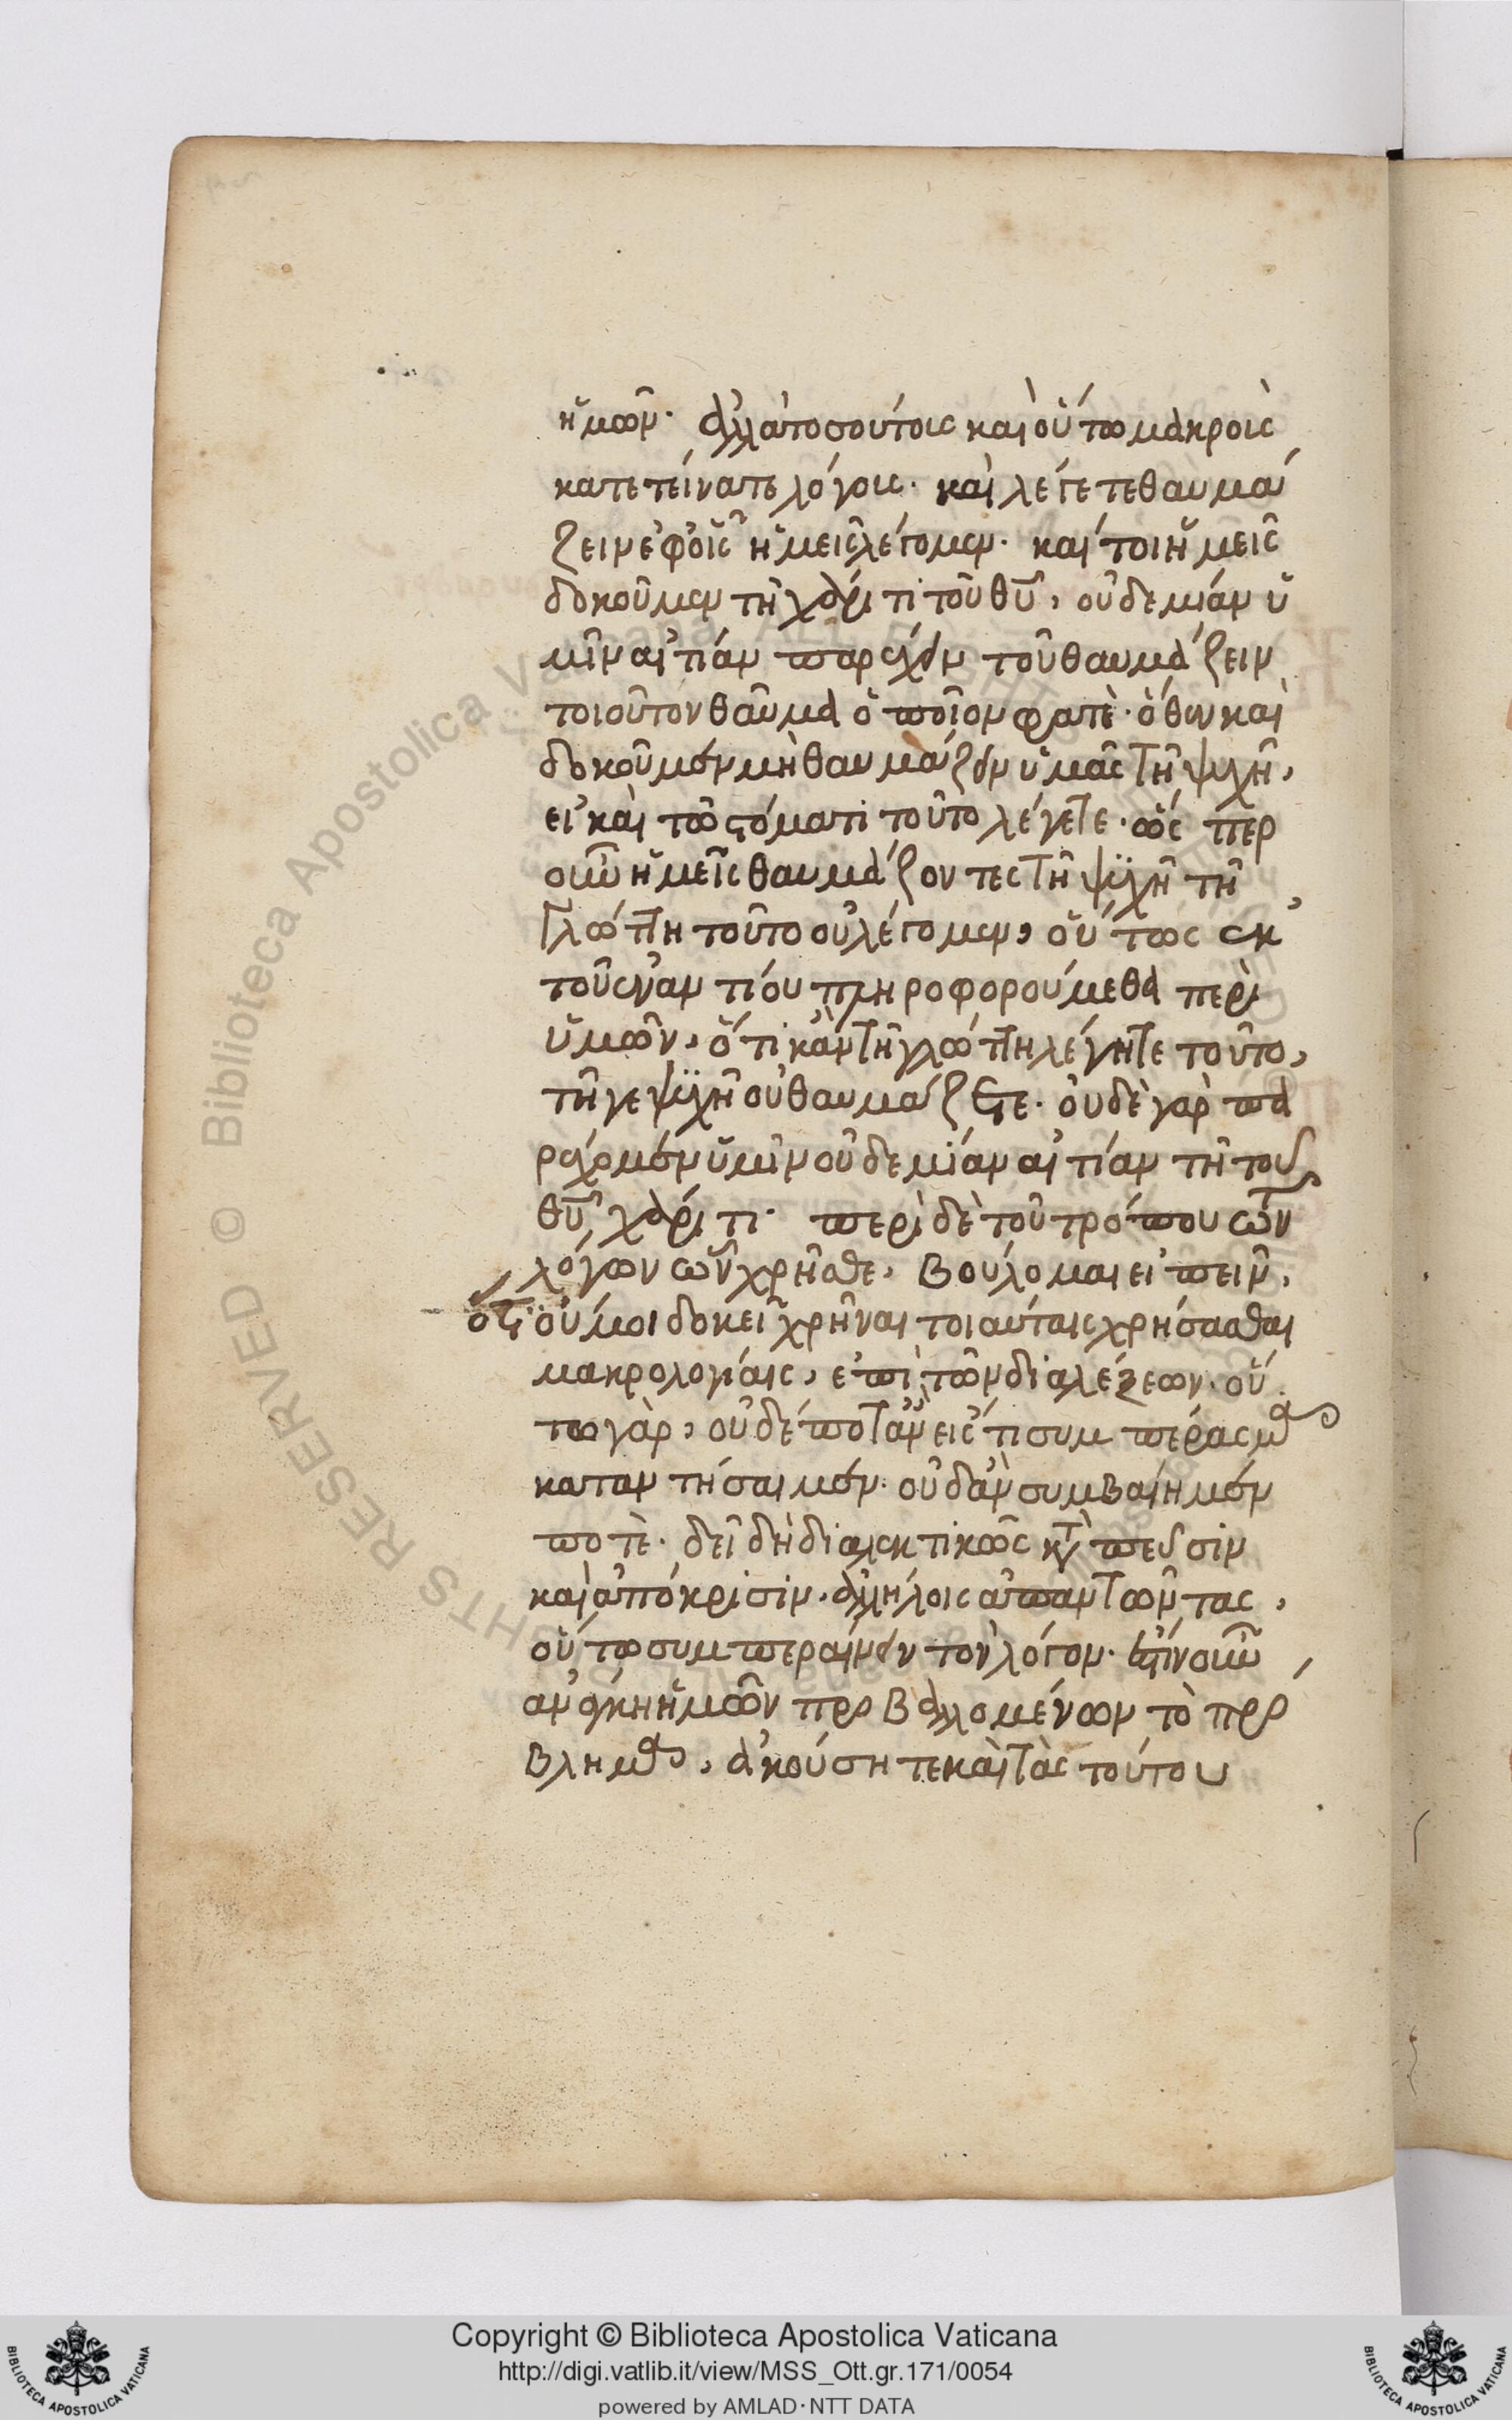 ἡμῶν· ἀλλὰ τοσούτοις καὶ οὕτω μακροῖς
κατετείνατε λόγοις· καὶ λέγετε θαυμά
ζειν ἐφ' οἷς ἡμεῖς λέγομεν· καίτοι ἡμεῖς
δοκοῦμεν τῇ χάριτι τοῦ θυ, οὐδεμίαν ὑ
μῖν αἰτίαν παρέχειν τοῦ θαυμάζειν
τοιοῦτον θαῦμα ὁποῖον φατὲ· ὅθεν καὶ
δοκοῦμεν μὴ θαυμάζειν ὑμᾶς τῇ ψυχῇ,
εἰ καὶ τῷ στόματι τοῦτο λέγετε· ὥσπερ
οὖν ἡμεῖς θαυμάζοντες τῇ ψυχῇ τῇ
γλώττῃ τοῦτο οὐ λέγομεν, οὕτως ἐκ
τοῦ ἐναντίου πληροφορούμεθα περὶ
ὑμῶν, ὅτι κἂν τῇ γλώττῃ λέγητε τοῦτο,
τῇ γε ψυχῇ οὐ θαυμάζετε· οὐδὲ γὰρ πα
ρέχομεν ὑμῖν οὐδεμίαν αἰτίαν τῇ τοῦ
θυ χάριτι· περὶ δὲ τοῦ τρόπου τῶν
λόγων ὧν χρῆσθε, βούλομαι εἰπεῖν,
ὅτι οὔ μοι δοκεῖ χρῆναι τοιαύταις χρήσασθαι
μακρολογίαις, ἐπὶ τῶν διαλέξεων· οὕ
τω γὰρ, οὐδέποτ' ἂν εἰς τι συμπέρασμα
καταντήσαιμεν· οὐδ' ἂν συμβαίημεν
ποτὲ· δεῖ δὴ διαλεκτικῶς κατὰ πεῦσιν
καὶ ἀπόκρισιν, ἀλλήλοις ἀπαντῶντας,
οὕτω συμπεραίνειν τὸν λόγον· ἐπὰν οὖν
ἀνήκῃ ἡμῶν προβαλλομένων τὸ πρό
βλημα, ἀκούσητε καὶ τὰς τούτου
Copyright © Biblioteca Apostolica Vaticana
http://digi.vatlib.it/view/MSS_Ott.gr.171/0054
powered by AMLAD·NTT DATA